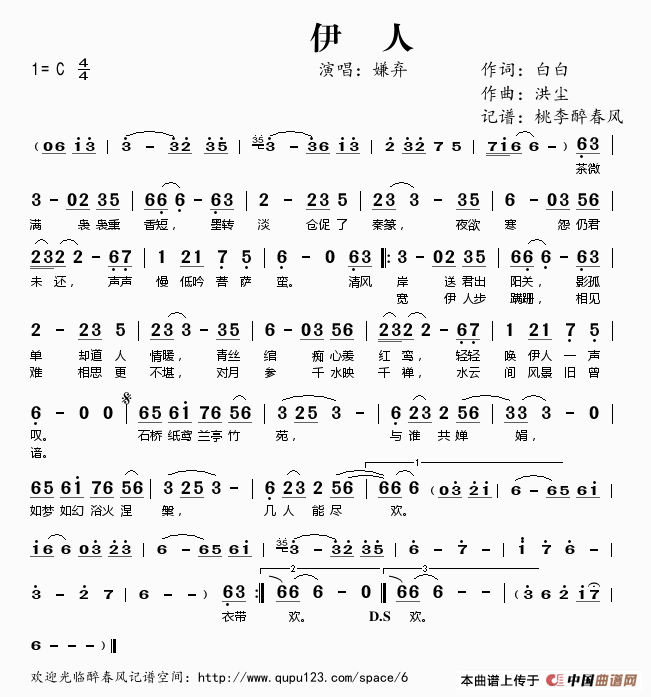 伊 人
1= C 4/4 演唱：嫌弃 作词：白白
作曲：洪尘
记谱：桃李醉春风
( 06 i3 | 3 - 32 35 | 35 3 - 36 i3 | 2 32 7 5 | 7i6 6 - ) 63 |
茶微
3 - 02 35 | 66 6 - 63 | 2 - 23 5 | 23 3 - 35 | 6 - 03 56 |
满 袅袅重 香短， 墨转 淡 仓促了 秦篆， 夜欲 寒 怨仍君
232 2 - 67 | 1 21 7 5 | 6 - 0 63 |: 3 - 02 35 | 66 6 - 63 |
未 还， 声声 慢 低吟 菩 萨 蛮。 清风 岸 送君出 阳关， 影孤
宽 伊人步 蹒跚， 相见
2 - 23 5 | 23 3 - 35 | 6 - 03 56 | 232 2 - 67 | 1 21 7 5 |
单 却道 人 情暖， 青丝 绾 痴心羡 红 鸾， 轻轻 唤 伊人 一 声
难 相思 更 不堪， 对月 参 千水映 千 禅， 水云 间 风景 旧 曾
6 - 0 0 | 65 6i 76 56 | 3 25 3 - | 6 23 2 56 | 33 3 - 0 |
叹。 石桥 纸鸢 兰亭 竹 苑， 与 谁 共婵 娟，
谙。
1
65 6i 76 56 | 3 25 3 - | 6 23 2 56 | 66 6 ( 03 2i | 6 - 65 6i |
如梦 如幻 浴火 涅 槃， 几 人 能尽 欢。
i6 6 03 23 | 6 - 65 6i | 35 3 - 32 35 | 6 - 7 - | i - 6 - |
2 3
3 - 2 7 | 6 - - ) 63 :| 66 6 - 0 :| 66 6 - - | ( 3 6 2 i7 |
衣带 欢。 D.S 欢。
6 - - - ) ||
欢迎光临醉春风记谱空间：http://www.qupu123.com/space/6
本曲谱上传于 中国曲谱网